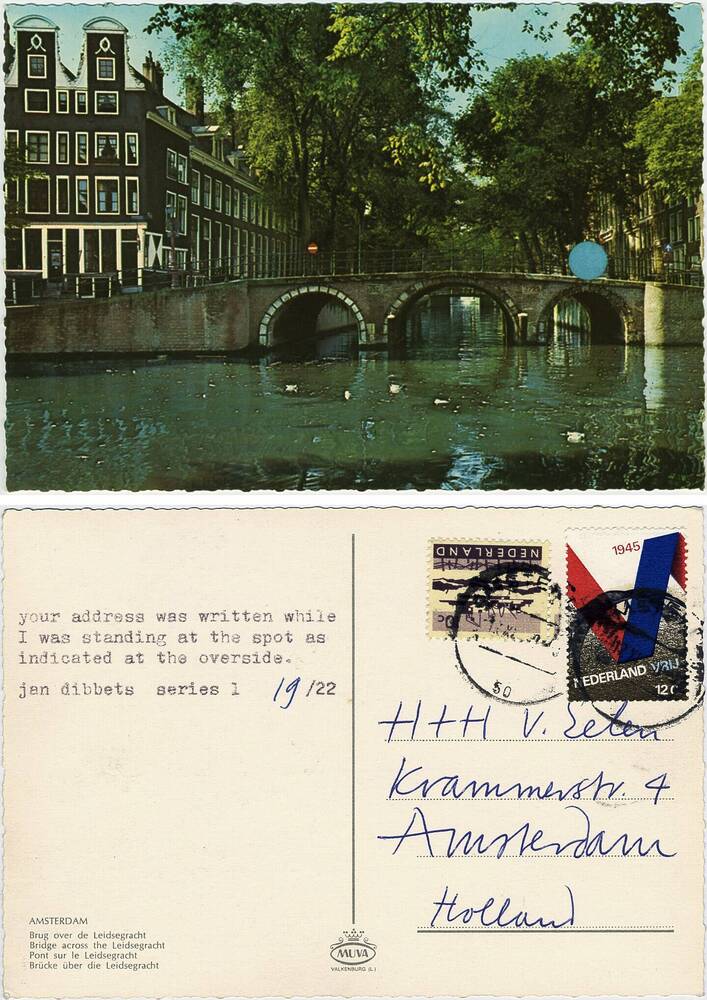 your address was written while
I was standing at the spot as
indicated at the overside.
jan dibbets series 1 19/22
NEDERLAND
1945
NEDERLAND VRIJ
12c
50
H+H V. Eelen
Krammerstr. 4
Amsterdam
Holland
AMSTERDAM
Brug over de Leidsegracht
Bridge across the Leidsegracht
Pont sur le Leidsegracht
Brücke über die Leidsegracht
MUVA
VALKENBURG (L.)